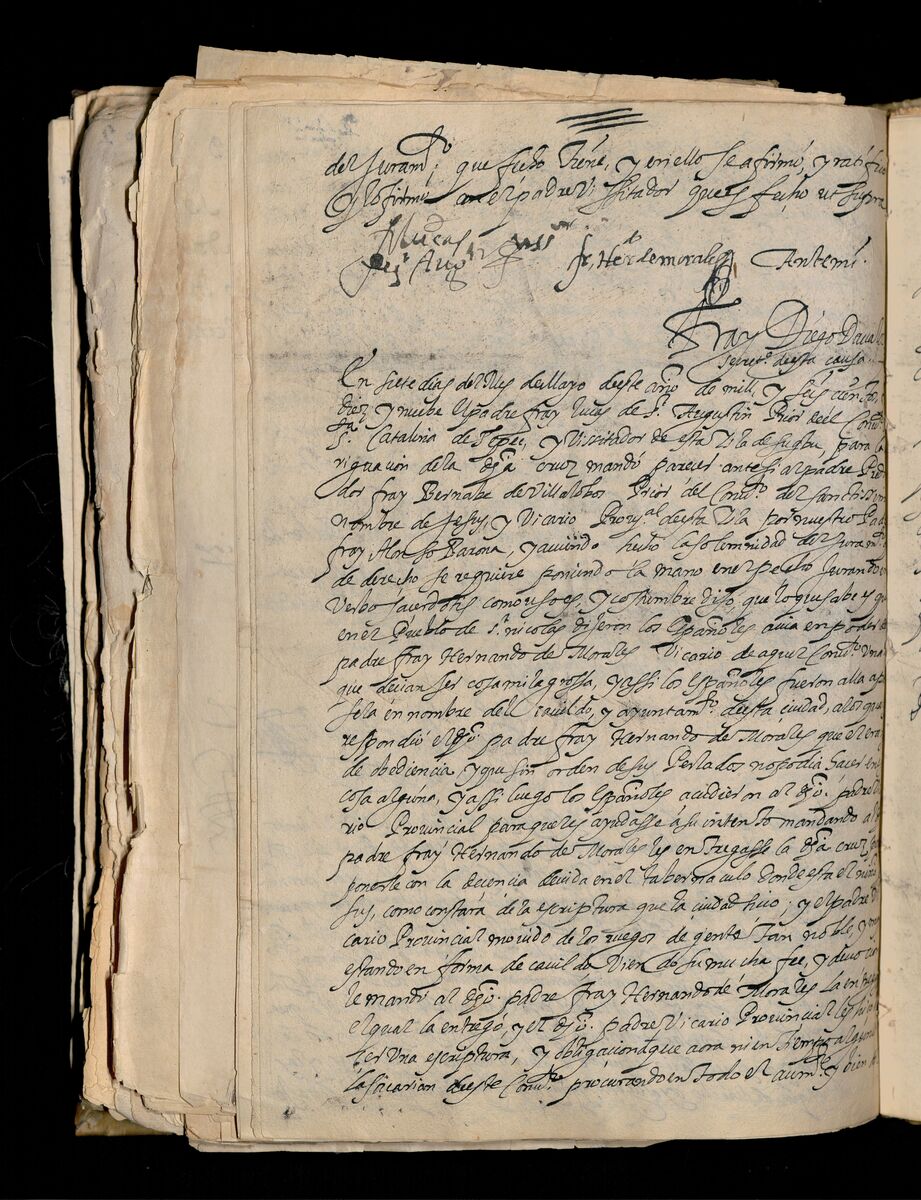 del Juramto. que fecho tiene, y en ello se afirmó, y ratifico
y lo firmó con el padre Vissitador que es fecho ut supra
fr. Lucas de
S. Augn
fr. Herdo. de morales Antemi.
Fray Diego
secreto. deesta causa
En siete dias del Mes de Mayo deeste año de mill, y seiscientos,
diez y nuebe el padre fray lucas de St. Augustin Prior deel Convto.
Sta. Catalina de Tepec, y Vissitador de esta Ysla de sugbu, para la
riguacion de la dha cruz mandó parecer ante si al padre Predi
dor fray Bernabe de Villalobos Prior del Convto. del sanctissimo
nombre de Jesus, y Vicario Provl. deesta Isla por nuestro Padre
fray Alonso Barona, y aviendo hecho la solemnidad del Juramto.
de derecho se requiere poniendo la mano en el pecho Jurando in
Verbo sacerdotis como uso es, y costumbre dijo, que lo que sabe es que
en el Pueblo de St. nicolas dijeron los Españoles avia en poder del
padre fray Hernando de Morales Vicario de aquel Convto. Una
que devian ser cosa milagrosa, y assi los Españoles fueron alla a pe
sela en nombre del cavildo, y ayuntamto. deesta ciudad, a los que
respondió el dho. padre fray Hernando de Morales que el era
de obediencia, y que sin orden de sus Perlados no podia hacer en
cosa alguna, y assi luego los Españoles acudieron al dho. padre Vi
rio Provincial para que les ayudasse a su intento mandando al
padre fray Hernando de Morales les entregasse la dha cruz
ponerle con la decencia devida en el tabernaculo donde esta el niño
sus, como constará de la escriptura que la ciudad hizo; y el padre Vi
cario Provincial movido de los ruegos de gente tan noble, y
estando en forma de cavildo Viendo su mucha fee, y devocion
le mandó al dho. padre fray Hernando de Morales la entregase
el qual la entregó, y el dho. padre Vicario Provincial les hizo
cer Una escriptura, y obligacion de que aora ni en tiempo alguno
la sacarian deeste Convto. procurando en todo el aumto. y bien de